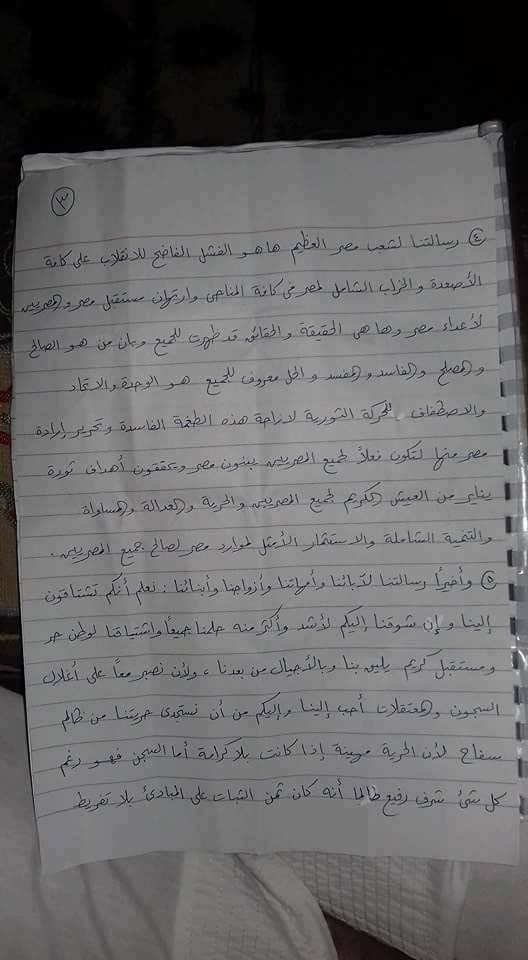 ٣
٤ رسالتنا لشعب مصر العظيم ها هو الفشل الفاضح للانقلاب على كافة
الأصعدة والخراب الشامل لمصر فى كافة المناحى وارتهان مستقبل مصر والمصريين
لأعداء مصر وها هى الحقيقة والحقائق قد ظهرت للجميع وبان من هو الصالح
والمصلح والفاسد والمفسد والحل معروف للجميع هو الوحدة والاتحاد
والاصطفاف للحركة الثورية لازاحة هذه الطغمة الفاسدة وتحرير إرادة
مصر منها لتكون فعلاً لجميع المصريين يبنون مصر ويحققون أهداف ثورة
يناير من العيش الكريم لجميع المصريين والحرية والعدالة والمساواة
والتنمية الشاملة والاستثمار الأمثل لموارد مصر لصالح جميع المصريين.
٥ وأخيراً رسالتنا لآبائنا وأمهاتنا وأزواجنا وأبنائنا: نعلم أنكم تشتاقون
إلينا وإن شوقنا إليكم لأشد وأكثر منه حلمنا جميعاً واشتياقنا لوطن حر
ومستقبل كريم يليق بنا وبالأجيال من بعدنا، ولأن نصبر معاً على أغلال
السجون والمعتقلات أحب إلينا وإليكم من أن نستجدى حريتنا من ظالم
سفاح لأن الحرية مهينة إذا كانت بلا كرامة أما السجن فهو رغم
كل شئ شرف رفيع طالما أنه كان ثمن الثبات على المبادئ بلا تفريط